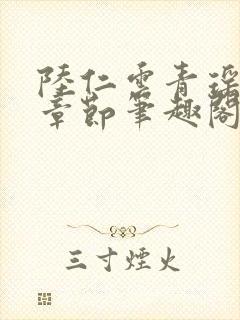 陸仁雲青瑶
章節筆趣閣
三寸煙火